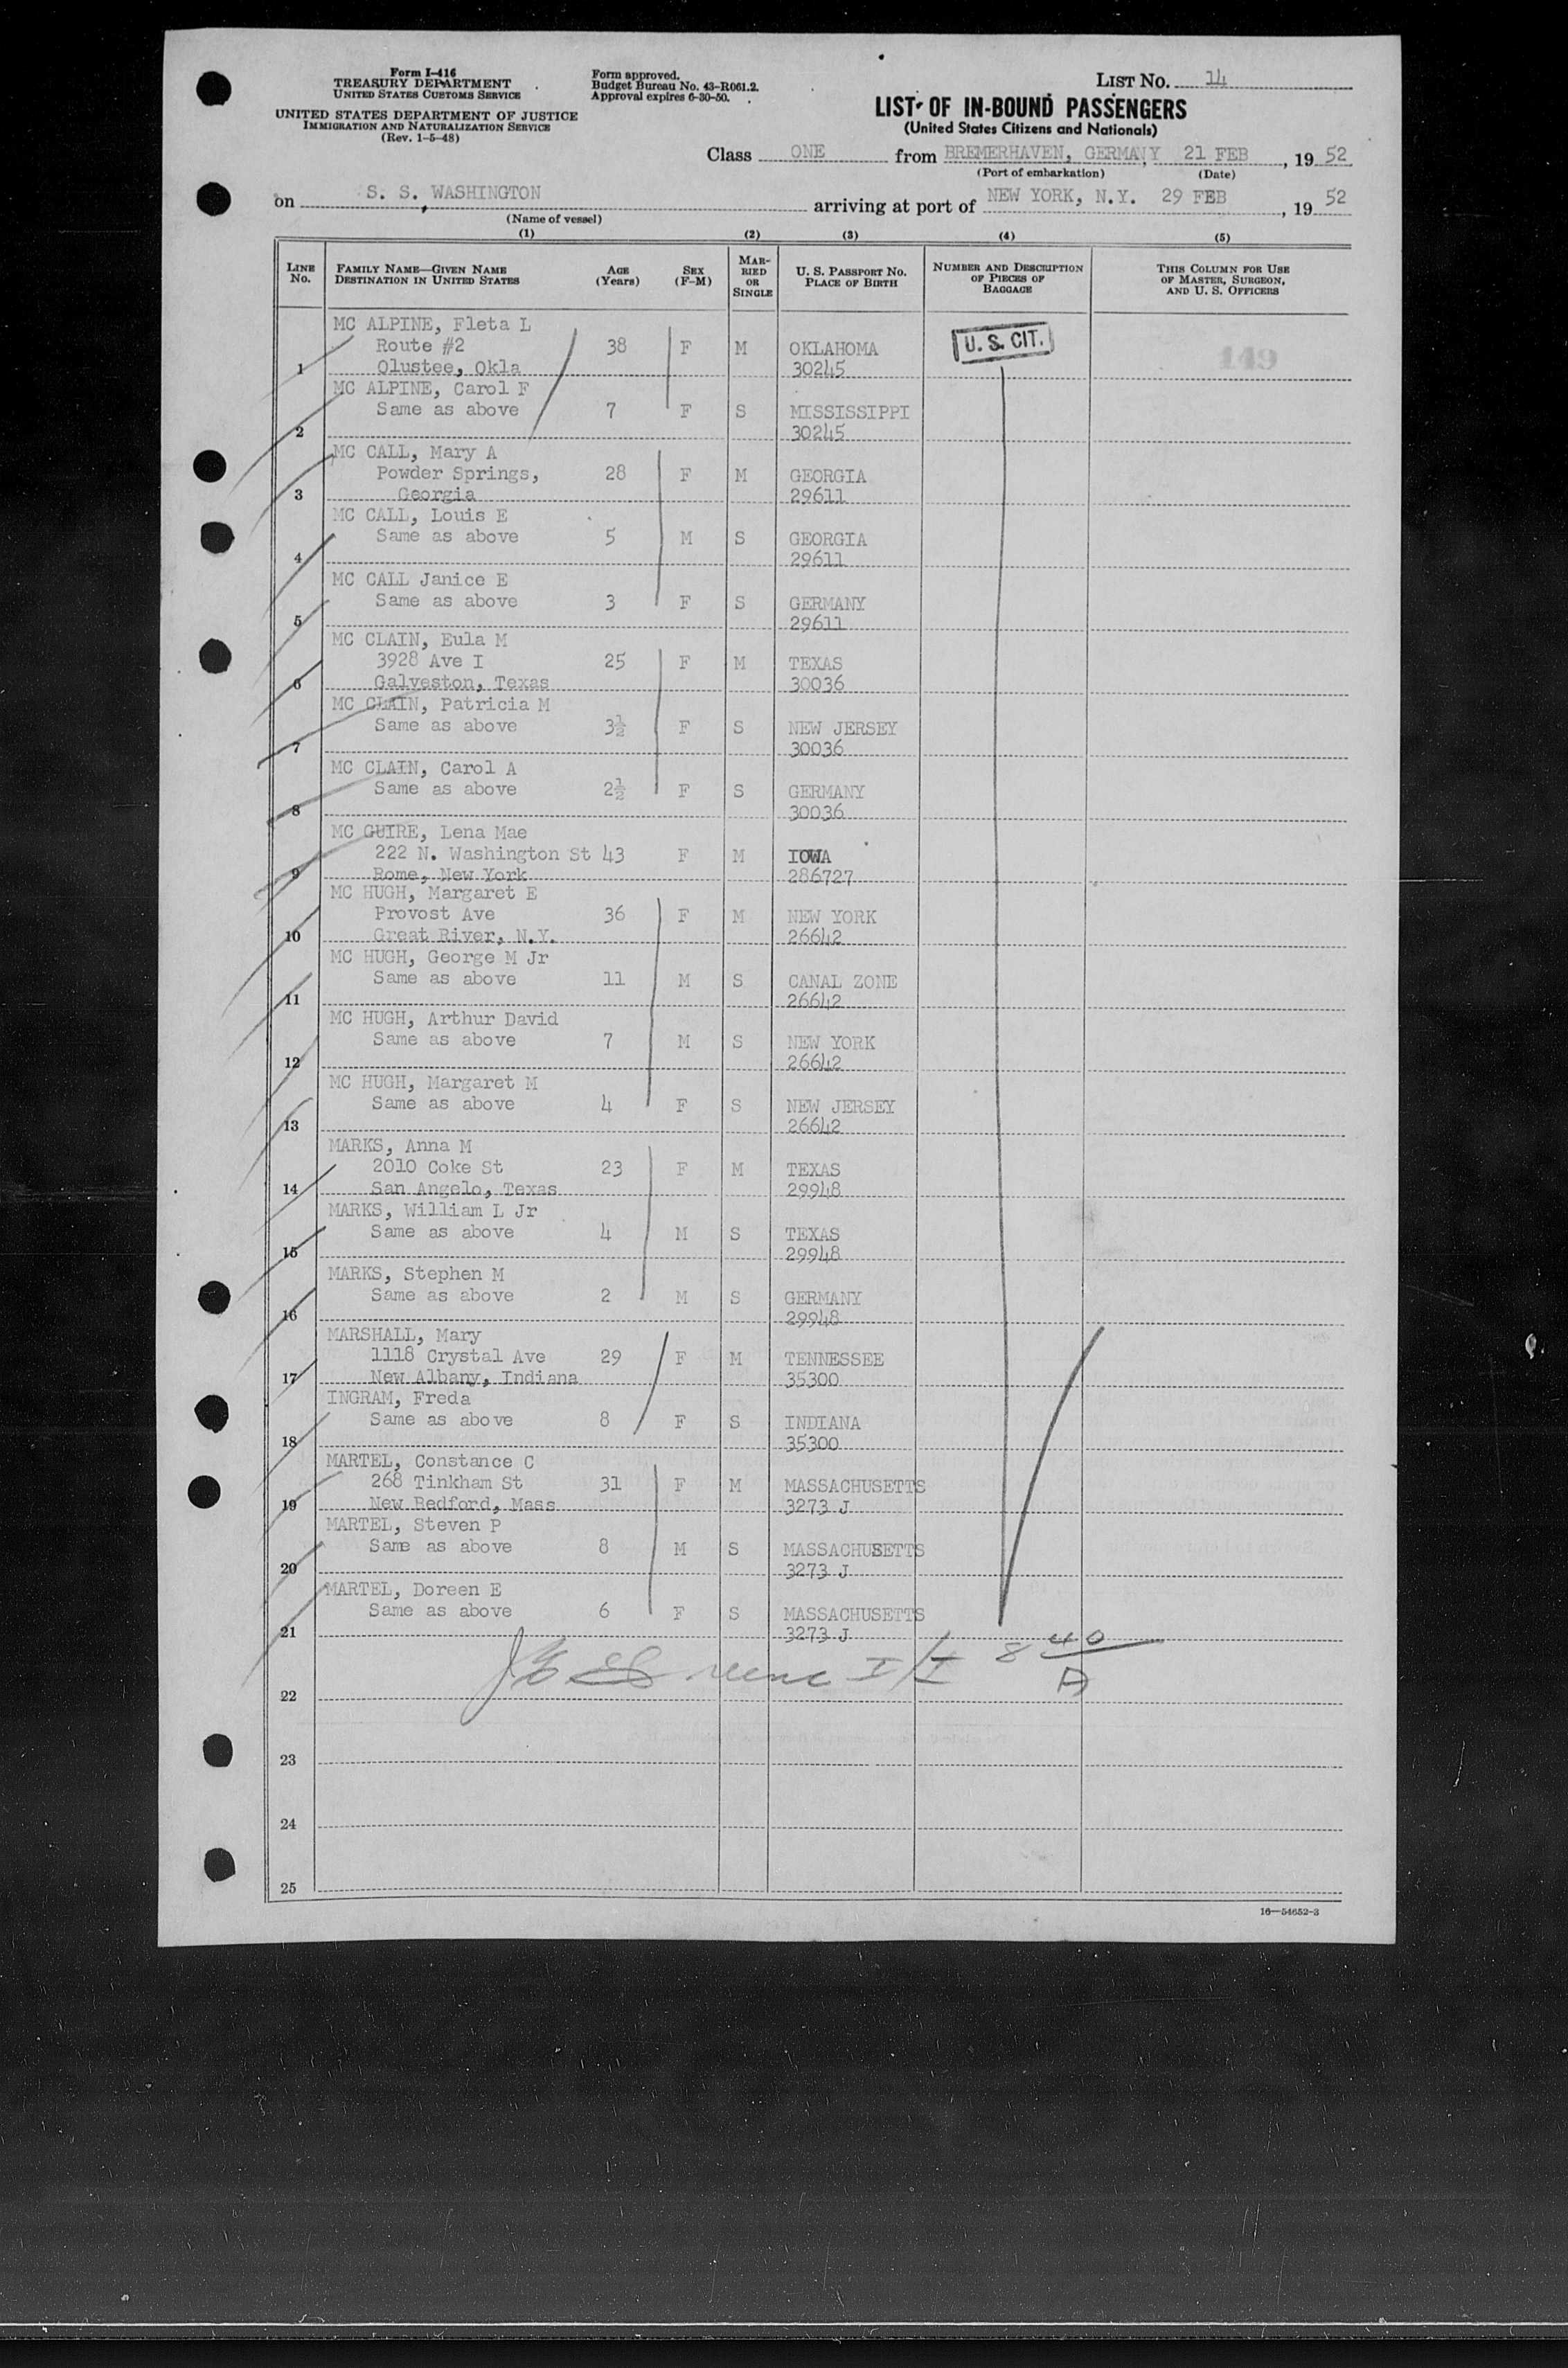 Form I-416
TREASURY DEPARTMENT
UNITED STATES CUSTOMS SERVICE
UNITED STATES DEPARTMENT OF JUSTICE
IMMIGRATION AND NATURALIZATION SERVICE
(Rev. 1-5-48)
Form approved.
Budget Bureau No. 43-R061.2.
Approval expires 6-30-50.
LIST NO. 14
LIST OF IN-BOUND PASSENGERS
(United States Citizens and Nationals)
Class ONE from BREMERHAVEN, GERMANY 21 FEB, 19 52
(Port of embarkation) (Date)
on S. S. WASHINGTON arriving at port of NEW YORK, N.Y. 29 FEB, 19 52
(Name of vessel)
(1) (2) (3) (4) (5)
LINE NO. FAMILY NAME—GIVEN NAME DESTINATION IN UNITED STATES AGE (Years) SEX (F-M) MARRIED OR SINGLE U. S. PASSPORT NO. PLACE OF BIRTH NUMBER AND DESCRIPTION OF PIECES OF BAGGAGE THIS COLUMN FOR USE OF MASTER, SURGEON, AND U. S. OFFICERS
MC ALPINE, Fleta L
Route #2 38 F M OKLAHOMA U. S. CIT. 149
1 Olustee, Okla 30245
MC ALPINE, Carol F
Same as above 7 F S MISSISSIPPI
2 30245
MC CALL, Mary A
Powder Springs, 28 F M GEORGIA
3 Georgia 29611
MC CALL, Louis E
Same as above 5 M S GEORGIA
4 29611
MC CALL Janice E
Same as above 3 F S GERMANY
5 29611
MC CLAIN, Eula M
3928 Ave I 25 F M TEXAS
6 Galveston, Texas 30036
MC CLAIN, Patricia M
Same as above 3½ F S NEW JERSEY
7 30036
MC CLAIN, Carol A
Same as above 2½ F S GERMANY
8 30036
MC GUIRE, Lena Mae
222 N. Washington St 43 F M IOWA
9 Rome, New York 286727
MC HUGH, Margaret E
Provost Ave 36 F M NEW YORK
10 Great River, N.Y. 26642
MC HUGH, George M Jr
Same as above 11 M S CANAL ZONE
11 26642
MC HUGH, Arthur David
Same as above 7 M S NEW YORK
12 26642
MC HUGH, Margaret M
Same as above 4 F S NEW JERSEY
13 26642
MARKS, Anna M
2010 Coke St 23 F M TEXAS
14 San Angelo, Texas 29948
MARKS, William L Jr
Same as above 4 M S TEXAS
15 29948
MARKS, Stephen M
Same as above 2 M S GERMANY
16 29948
MARSHALL, Mary
1118 Crystal Ave 29 F M TENNESSEE
17 New Albany, Indiana 35300
INGRAM, Freda
Same as above 8 F S INDIANA
18 35300
MARTEL, Constance C
268 Tinkham St 31 F M MASSACHUSETTS
19 New Bedford, Mass 3273 J
MARTEL, Steven P
Same as above 8 M S MASSACHUSETTS
20 3273 J
MARTEL, Doreen E
Same as above 6 F S MASSACHUSETTS
21 3273 J
8 40
A
22
23
24
25
16—54652-3